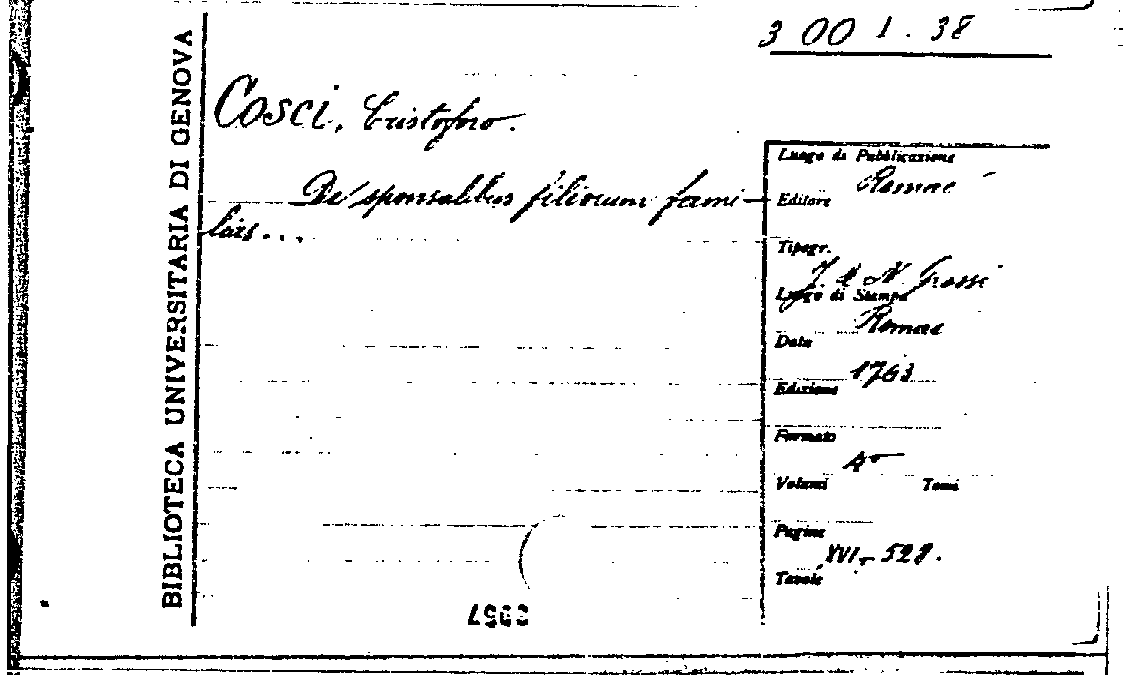 BIBLIOTECA UNIVERSITARIA DI GENOVA
3 OO 1.38
Cosci, Cristoforo.
De sponsalibus filiorum fami-
lias...
Luogo di Pubblicazione
Romae
Editore
Tipogr.
J & N Grossi
Luogo di Stampa
Romae
Data
1763
Edizione
Formato
4°
Volumi Tomi
Pagine
XVI-528.
Tavole